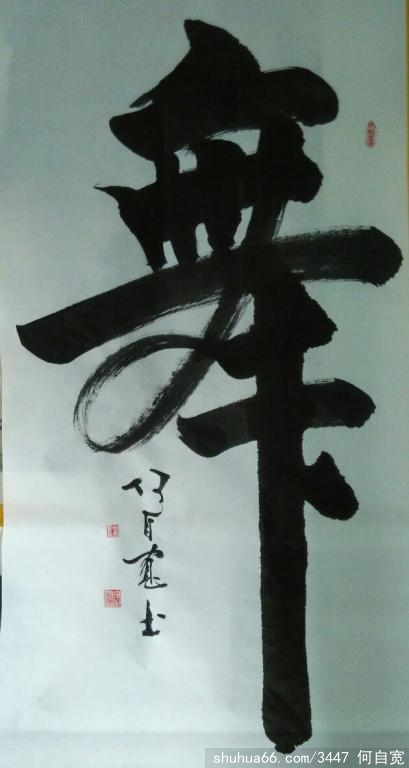 舞
何自宽书
shuhua66.com/3447 何自宽